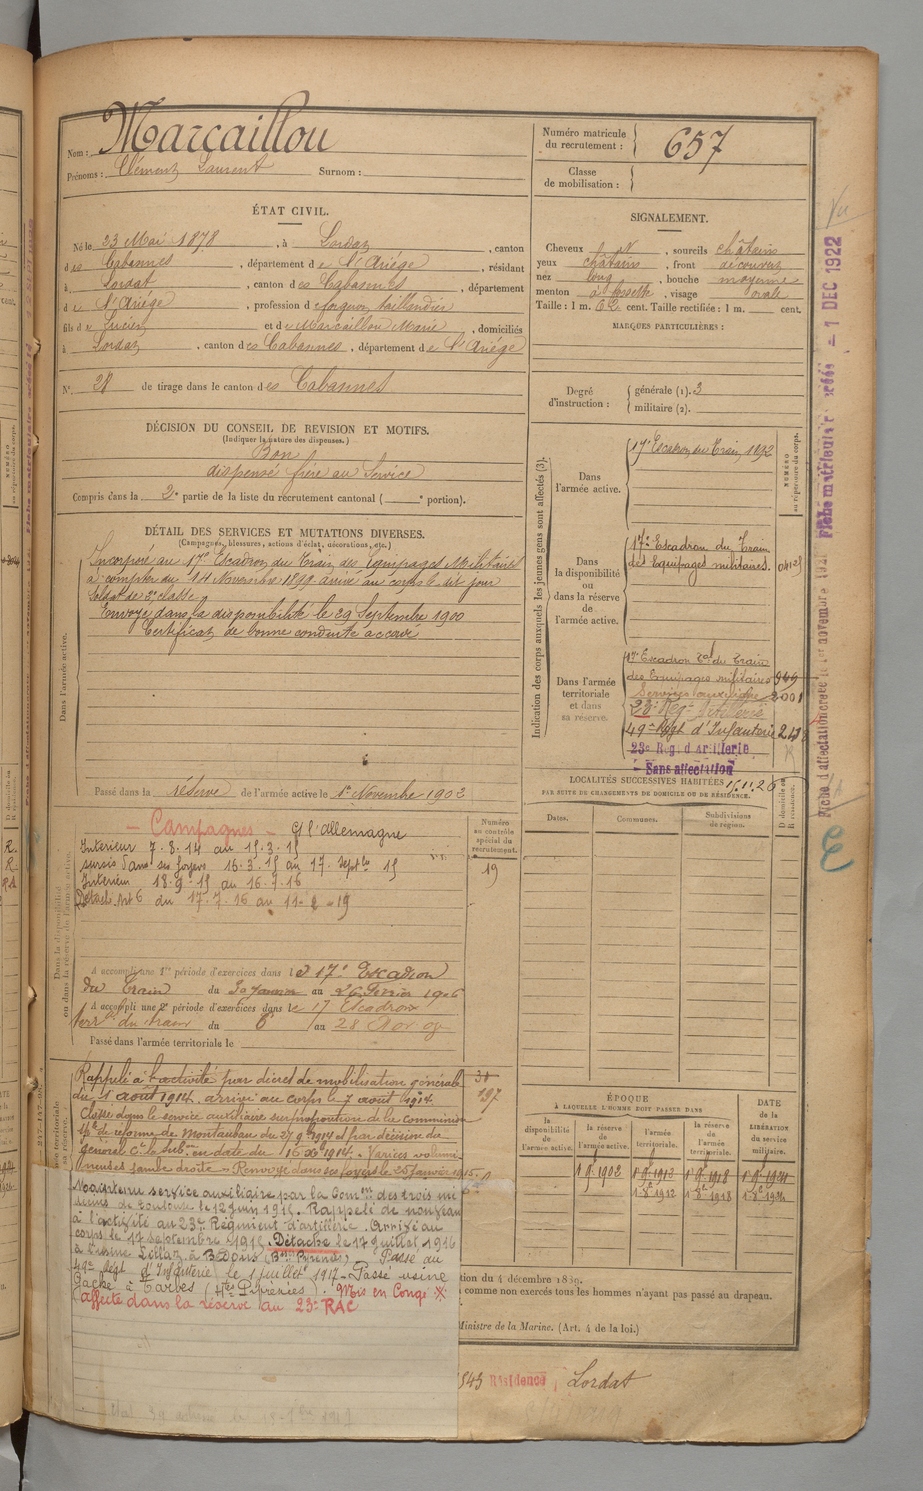 Nom : Marcaillou
Prénoms : Clément Laurent Surnom :
Numéro matricule du recrutement : 657
Classe de mobilisation :
ÉTAT CIVIL.
Né le 23 Mai 1878, à Lordat, canton
des Cabannes, département de l'Ariége, résidant
à Lordat, canton des Cabannes, département
de l'Ariége, profession de forgeron taillandier
fils de Lucien et de Marcaillou Marie, domiciliés
à Lordat, canton des Cabannes, département de l'Ariége
N° 28 de tirage dans le canton des Cabannes
SIGNALEMENT.
Cheveux , sourcils châtains
yeux châtains, front découvert
nez long, bouche moyenne
menton à fossette, visage ovale
Taille : 1 m. 62 cent. Taille rectifiée : 1 m. cent.
MARQUES PARTICULIÈRES :
Degré d'instruction : générale (1). 3
militaire (2).
DÉCISION DU CONSEIL DE REVISION ET MOTIFS.
(Indiquer la nature des dispenses.)
Bon
dispensé frère au Service
Compris dans la 2e partie de la liste du recrutement cantonal ( portion).
DÉTAIL DES SERVICES ET MUTATIONS DIVERSES.
(Campagnes, blessures, actions d'éclat, décorations, etc.)
Dans l'armée active.
Incorporé au 17e Escadron du Train des Equipages Militaires
à compter du 14 Novembre 1899 arrivé au corps le dit jour
Soldat de 2e classe
Envoyé dans la disponibilité le 29 Septembre 1900
Certificat de bonne conduite accordé
Passé dans la réserve de l'armée active le 1er Novembre 1902
Indication des corps auxquels les jeunes gens sont affectés (3).
NUMÉRO au répertoire du corps.
Dans l'armée active.
17e Escadron du Train
Dans la disponibilité ou dans la réserve de l'armée active.
17e Escadron du Train
des Equipages militaires.
Dans l'armée territoriale et dans sa réserve.
17e Escadron Tal du Train
des Equipages militaires 969
Services auxiliaires 2001
23e Reg. Artillerie
49e Regt d'Infanterie
23e Reg. d'Artillerie
Sans affectation
LOCALITÉS SUCCESSIVES HABITÉES
PAR SUITE DE CHANGEMENTS DE DOMICILE OU DE RÉSIDENCE.
Dates. Communes. Subdivisions de région. D. domicile ou R. résidence.
Dans la disponibilité ou dans la réserve de l'armée active.
Campagnes - C l'allemagne
Intérieur 7-8-14 au 15-3-15
sursis dans ses foyers 16-3-15 au 17 Septbre 15
Intérieur 18-9-15 au 16-7-16
du 17-7-16 au
Numéro au contrôle spécial du recrutement.
19
A accompli une 1re période d'exercices dans le 17e Escadron
du Train du 30 Janvier au 26 Février 1906
A accompli une 2e période d'exercices dans le 17 Escadron
terr. du train du 6 au 28
Passé dans l'armée territoriale le
Rappelé à l'activité par décret de mobilisation générale
du 1 août 1914. arrivé au corps le 7 août 1914
Classé dans le service auxiliaire sur proposition de la commission
de réforme de Montauban du 27 9bre 1914 et par décision du
général Ct la Subon en date du 16 Xbre 1914. Varices volumi-
neuses jambe droite - Renvoyé dans ses foyers le 25 janvier 1915.
Maintenu service auxiliaire par la Comon des trois mé
decins de Toulouse le 12 juin 1915. Rappelé de nouveau
à l'activité au 23e Régiment d'artillerie. Arrivé au
corps le 17 septembre 1915. Détaché le 17 Juillet 1916
à l'usine Lillaz à Bedous (Bses Pyrénées). Passé au
49e Régt d'Infanterie le 1 juillet 1917. Passé usine
à Tarbes (Htes Pyrénées). Mis en Congé
affecté dans la réserve au 23e RAC
ÉPOQUE
À LAQUELLE L'HOMME DOIT PASSER DANS
la disponibilité de l'armée active. la réserve de l'armée active. l'armée territoriale. la réserve de l'armée territoriale.
DATE de la LIBÉRATION du service militaire.
tion du 4 décembre 1889.
comme non exercés tous les hommes n'ayant pas passé au drapeau.
Ministre de la Marine. (Art. 4 de la loi.)
Résidence, Lordat
1 DEC 1922